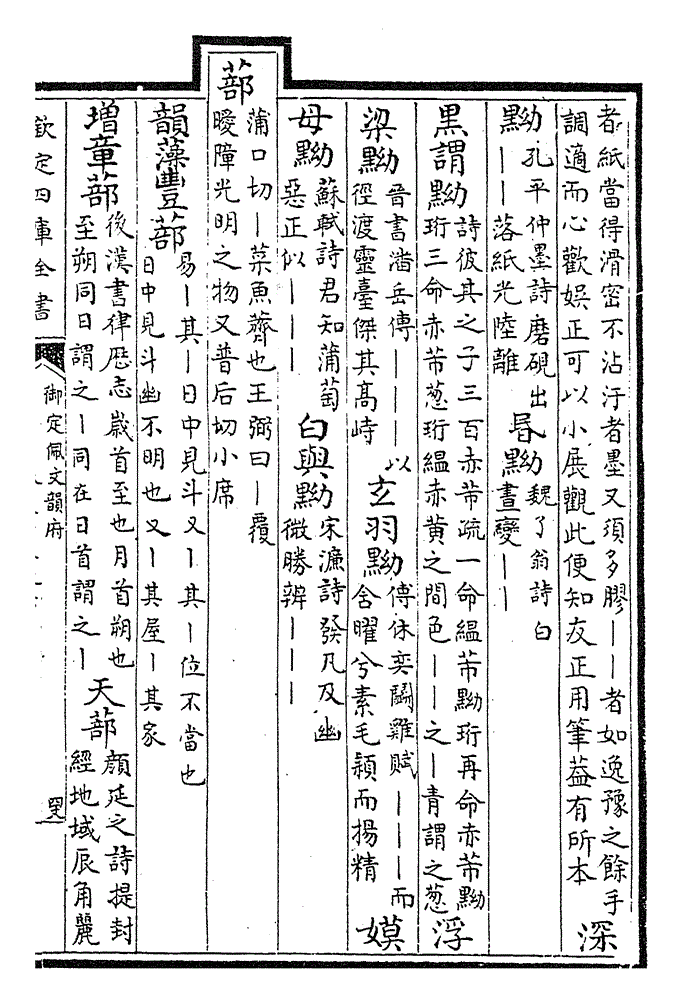 者紙當得滑密不沾汙者墨又須多膠｜｜者如逸豫之餘手
調適而心歡娛正可以小展觀此便知友正用筆益有所本
深
黝孔平仲墨詩磨硯出
｜｜落紙光陸離
晷黝魏了翁詩白
晝變｜｜
黑謂黝詩彼其之子三百赤芾疏一命縕芾黝珩再命赤芾黝
珩三命赤芾蔥珩縕赤黃之間色｜｜之｜青謂之蔥
浮
梁黝晉書潘岳傳｜｜｜以
徑渡靈臺傑其高峙
玄羽黝傅休奕鬬雞賦｜｜｜而
含曜兮素毛頴而揚精
嫫
母黝蘇軾詩君知蒲萄
惡正似｜｜｜
白與黝宋濂詩發凡及幽
微勝辨｜｜｜
蔀
蒲口切｜菜魚薺也王弼曰｜覆
曖障光明之物又普后切小席
韻藻豐蔀易｜其｜日中見斗又｜其｜位不當也
日中見斗幽不明也又｜其屋｜其家
增章蔀後漢書律歷志歲首至也月首朔也
至朔同日謂之｜同在日首謂之｜
天蔀顏延之詩提封
經地域辰角麗
欽定四庫全書
御定佩文韻府